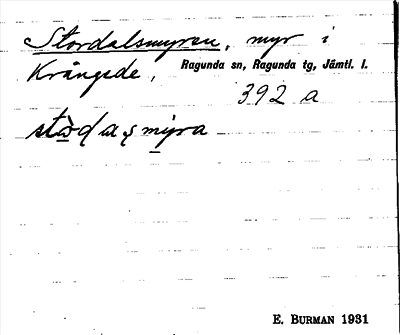 Stordalsmyren, myr i
Krångede, Ragunda sn, Ragunda tg, Jämtl. l.
392 a
E. BURMAN 1931